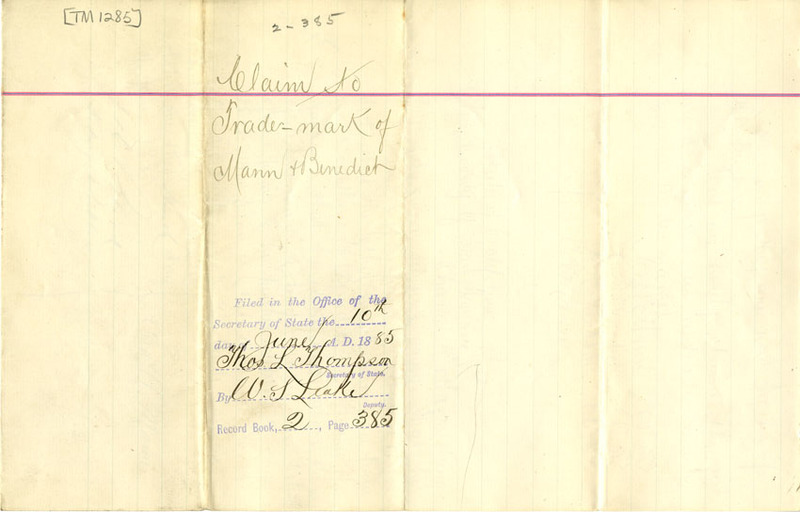 [TM 1285]
2-385
Claim to
Trade-mark of
Mann & Benedict
Filed in the Office of the
Secretary of State the 10th
day of June A. D. 1885
Thos L Thompson
Secretary of State.
By W. S Leake
Deputy.
Record Book, 2, Page 385